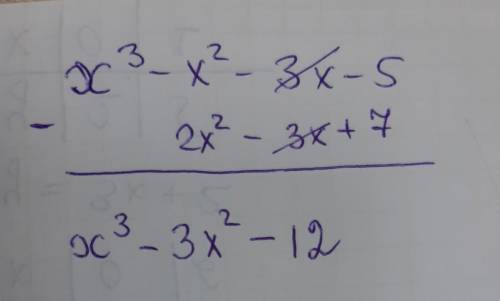 x³ - x² - 3x - 5
- 2x² - 3x + 7
x³ - 3x² - 12